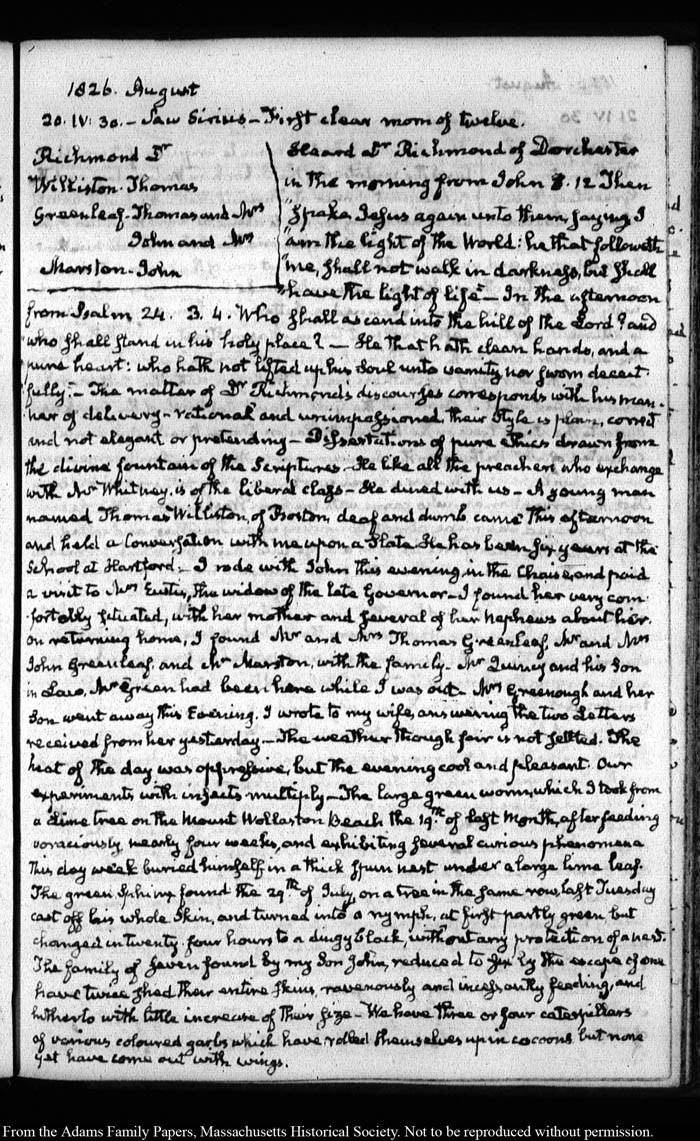 1826. August
20. IV: 30. — Saw Sirius — First clear morn of twelve.
Richmond Dr
Williston. Thomas
Greenleaf. Thomas and Mrs
John and Mrs
Marston. John
Heard Dr Richmond of Dorchester
in the morning from John 8. 12 Then
"spake Jesus again unto them, saying I
"am the light of the World: he that followeth
"me, shall not walk in darkness, but shall
"have the light of life" — In the afternoon
from Psalm 24. 3. 4. Who shall ascend into the hill of the Lord? and
who shall stand in his holy place? — He that hath clean hands, and a
pure heart: who hath not lifted up his Soul unto vanity nor sworn deceit-
fully. — The matter of Dr Richmond's discourses corresponds with his man-
ner of delivery — rational and unimpassioned, their style is plain, correct
and not elegant or pretending — Dissertations of pure Ethics drawn from
the divine fountain of the Scriptures — He like all the preachers who exchange
with Mr Whitney, is of the liberal class — He dined with us — A young man
named Thomas Williston, of Boston, deaf and dumb came this afternoon
and held a Conversation with me upon a Slate. He has been six years at the
School at Hartford. — I rode with John this evening in the Chaise, and paid
a visit to Mrs Eustis, the widow of the late Governor — I found her very com-
fortably situated, with her mother and several of her nephews about her.
On returning home, I found Mr and Mrs Thomas Greenleaf, Mr and Mrs
John Greenleaf, and Mr Marston, with the family — Mr Quincy and his Son
in Law, Mr Green had been here while I was out — Mrs Greenough and her
Son went away this Evening. I wrote to my wife, answering the two Letters
received from her yesterday. — The weather though fair is not settled. The
heat of the day was oppressive, but the evening cool and pleasant. Our
experiments with insects multiply — The large green worm, which I took from
a Lime tree on the Mount Wollaston Beach the 19th of last Month, after feeding
voraciously nearly four weeks, and exhibiting several curious phenomena
this day week buried himself in a thick spun nest under a large lime leaf.
The green Sphinx found the 29th of July, on a tree in the same row, last Tuesday
cast off his whole Skin, and turned into a nymph, at first partly green but
changed in twenty-four hours to a dingy black, without any protection of a nest.
The family of seven found by my Son John, reduced to six by the escape of one
have twice shed their entire skins, ravenously and incessantly feeding, and
hitherto with little increase of their size — We have three or four caterpillars
of various coloured garbs which have rolled themselves up in cocoons but none
yet have come out with wings.
From the Adams Family Papers, Massachusetts Historical Society. Not to be reproduced without permission.